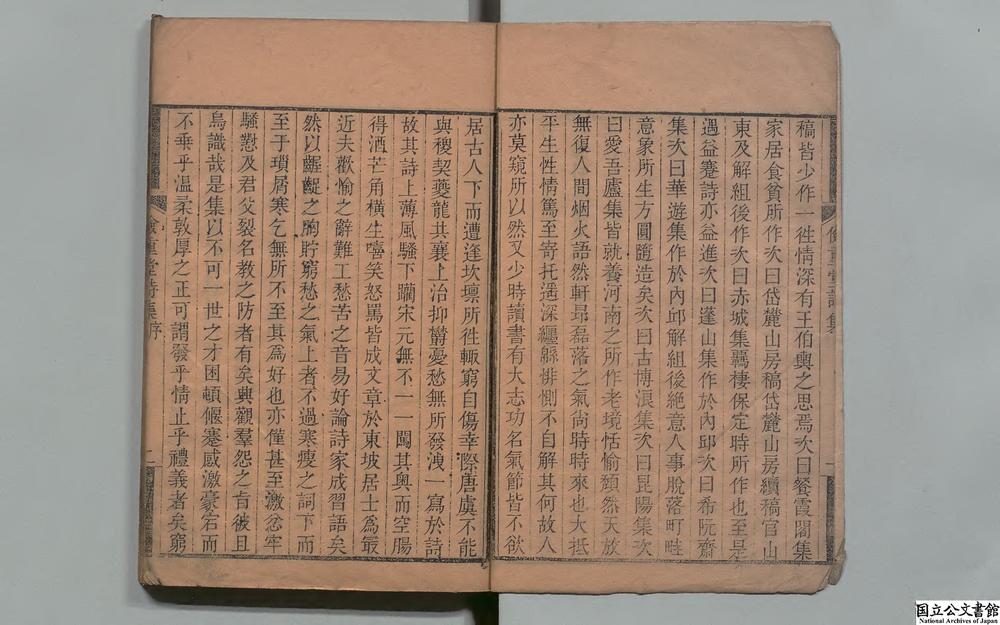 稿皆少作一徃情深有王伯輿之思焉次曰餐霞閣集
家居食貧所作次曰岱麓山房稿岱麓山房續稿官山
東及解組後作次曰赤城集羈棲保定時所作也至是
遇益蹇詩亦益進次曰蓬山集作於內邱次曰希阮齋
集次曰華遊集作於內邱解組後絶意人事脫落町畦
意象所生方圓隨造矣次曰古博浪集次曰昆陽集次
曰愛吾廬集皆就養河南之所作老境恬愉頹然天放
無復人間烟火語然軒昻磊落之氣尙時時來也大抵
平生性情篤至寄托遥深纏緜悱惻不自解其何故人
亦莫窺所以然又少時讀書有大志功名氣節皆不欲
居古人下而遭逢坎壈所徃輙窮自傷幸際唐虞不能
與稷契夔龍共襄上治抑欝憂愁無所發洩一寫於詩
故其詩上薄風騷下躪宋元無不一一闖其奥而空腸
得酒芒角橫生嘻笑怒罵皆成文章於東坡居士爲最
近夫歡愉之辭難工愁苦之音易好論詩家成習語矣
然以齷齪之胸貯窮愁之氣上者不過寒瘦之詞下而
至于瑣屑寒乞無所不至其爲好也亦僅甚至激忿牢
騷懟及君父裂名教之防者有矣興觀羣怨之旨彼且
烏識哉是集以不可一世之才困頓偃蹇感激豪宕而
不乖乎溫柔敦厚之正可謂發乎情止乎禮義者矣窮
堂詩集序
二